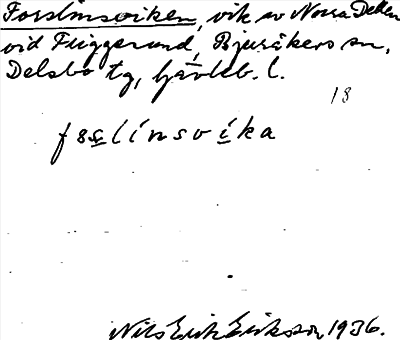 Forslinsviken, vik av Norra Dellen
vid Friggesund, Bjuråkers sn,
Delsbo tg, Gävleb. l.
18
Nils Erik Eriksson 1936.